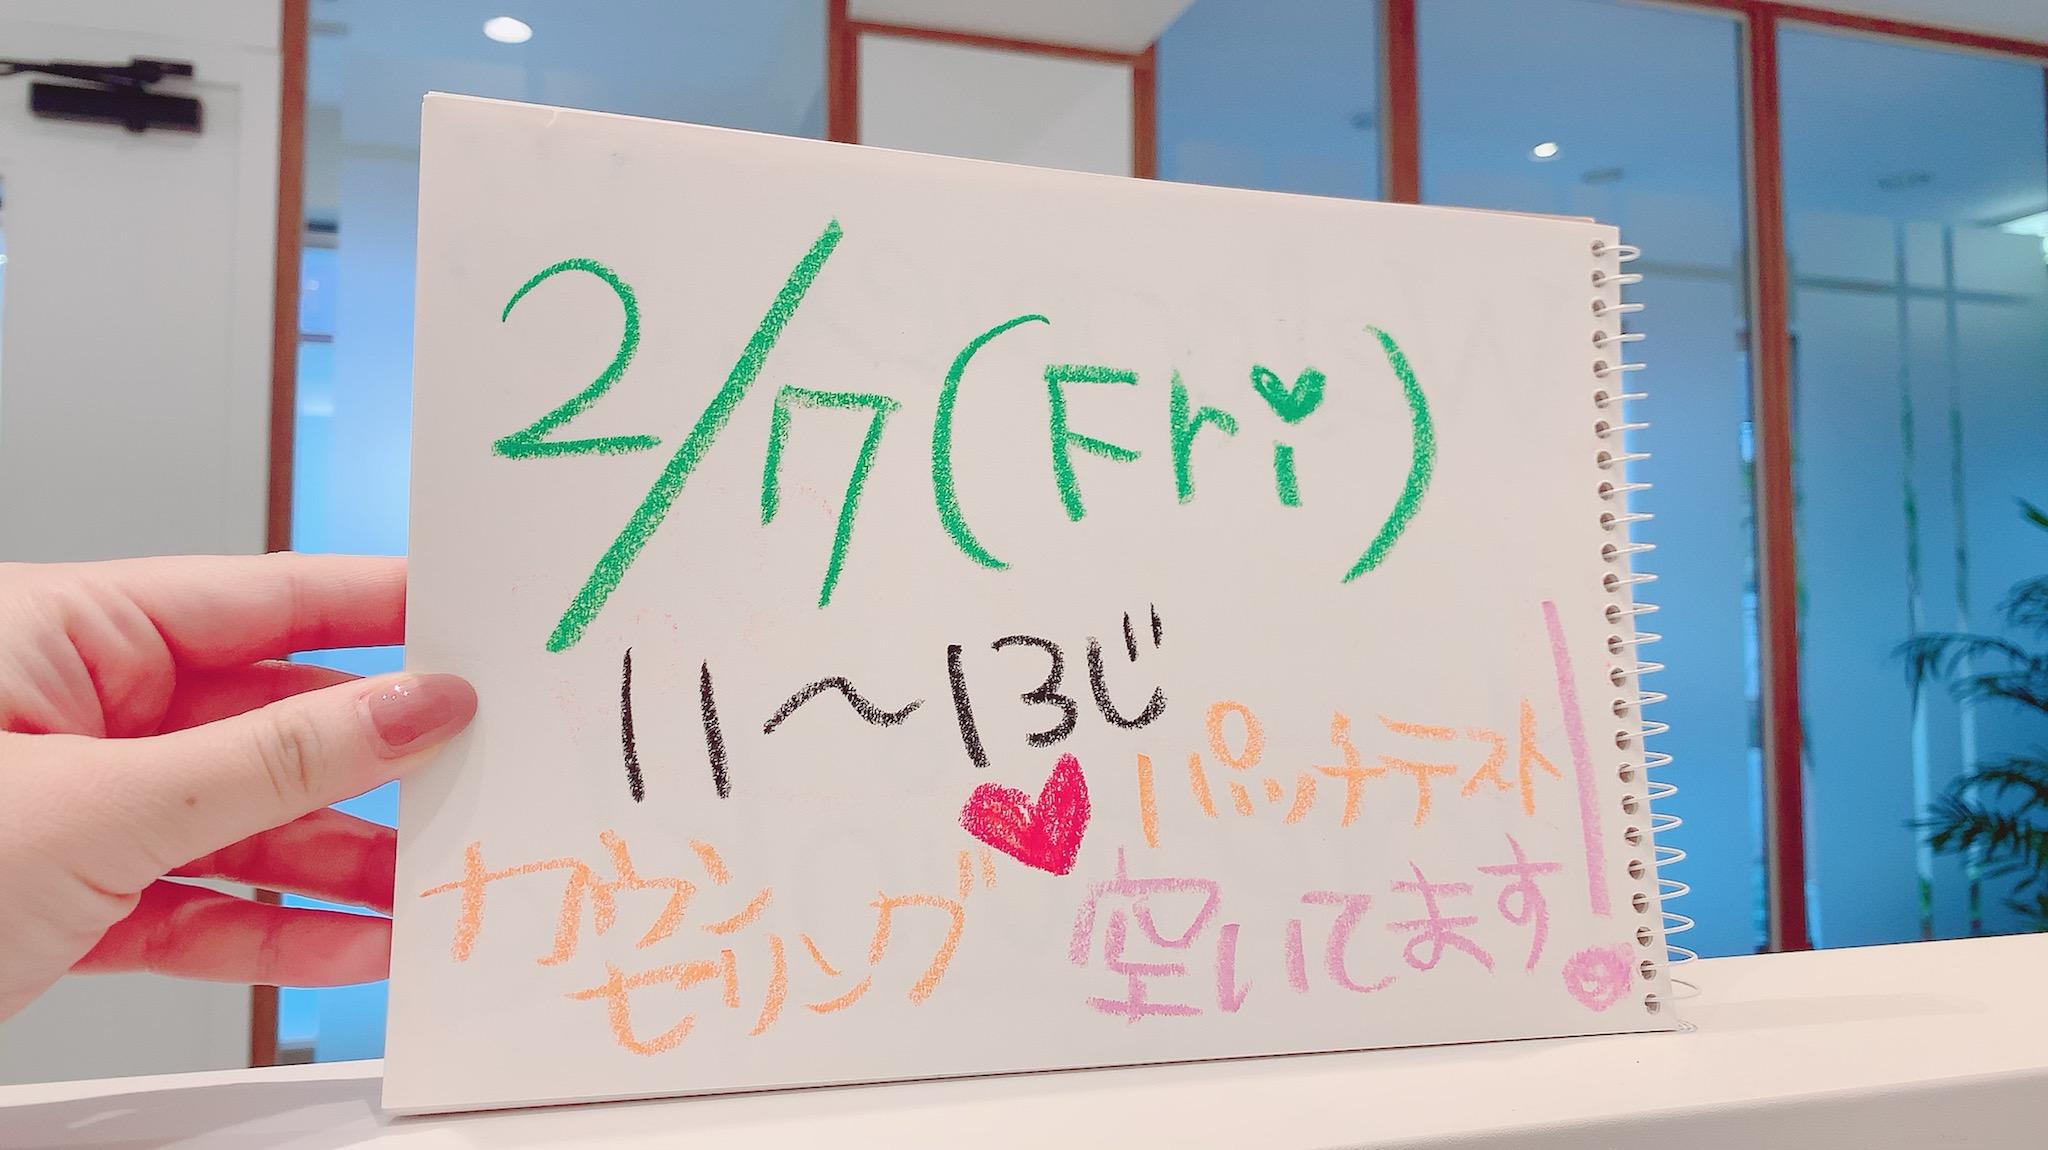 2/7(Fri)
11〜13じ
カウンセリング
パッチテスト
空いてます!